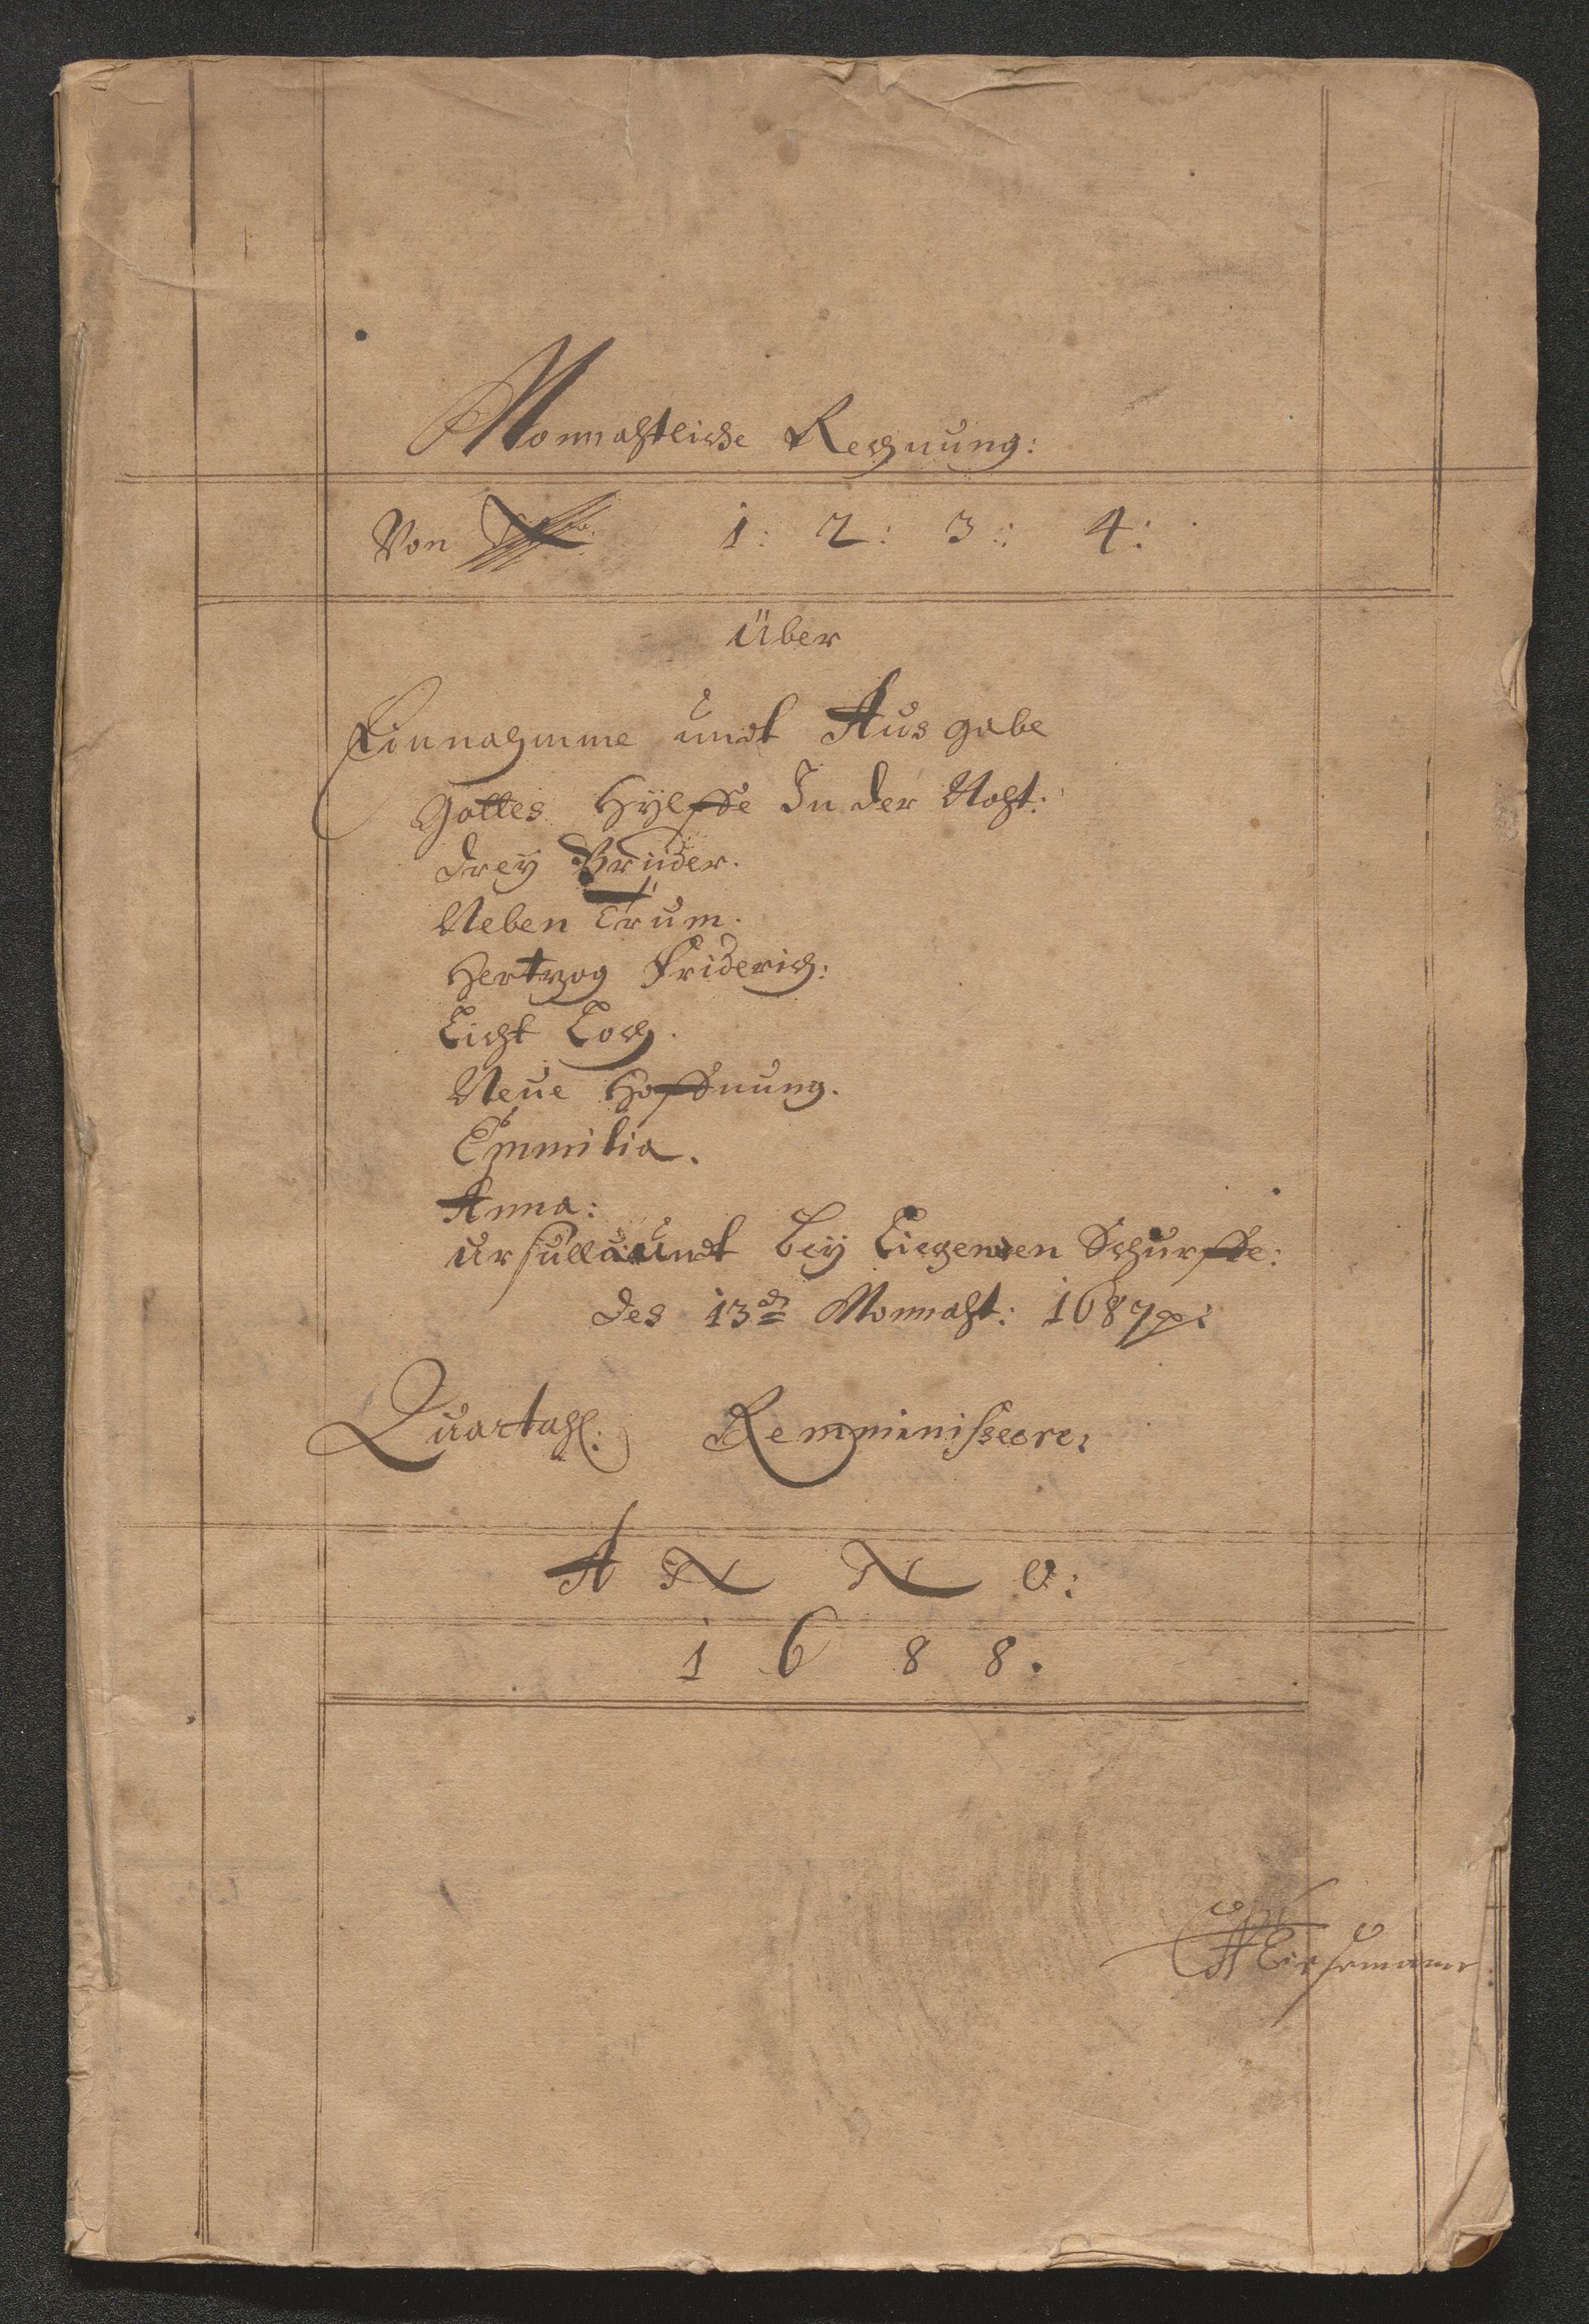 Monnahtliche Rechnung:
Von 1: 2: 3: 4:
Über
Einnahmme undt Ausgabe
Gottes Hÿlffe In der Noht:
Dreÿ Brüder.
Neben Trum.
Hertzog Friderich:
Licht Loch.
Neue Hoffnung.
Emmilia.
Anna:
Ursulla undt beÿ Liegenden Schurffe:
Des 13d Monnaht: 1687
Quartahl: Remminissere:
ANNO:
1688.